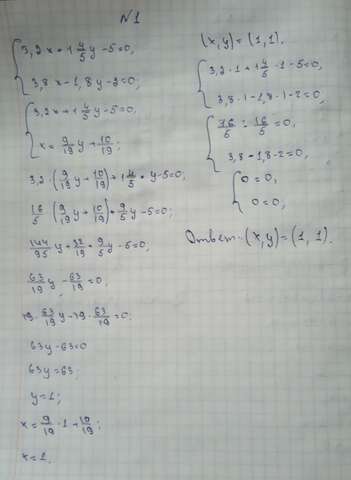 №1
{3,2x+1 4/5 y-5=0,
{3,8x-1,8y-2=0;
{3,2x+1 4/5 y-5=0,
{x=9/19 y+10/19;
3,2·(9/19 y+10/19)+1 4/5·y-5=0;
16/5·(9/19 y+10/19)+9/5 y-5=0;
144/95 y+32/19+9/5 y-5=0;
63/19 y-63/19=0;
19·63/19 y-19·63/19=0
63y-63=0
63y=63;
y=1;
x=9/19·1+10/19;
x=1.
(x,y)=(1,1).
{3,2·1+1 4/5·1-5=0,
{3,8·1-1,8·1-2=0;
{16/5-16/5=0,
{3,8-1,8-2=0;
{0=0,
{0=0;
Ответ: (x,y)=(1,1).